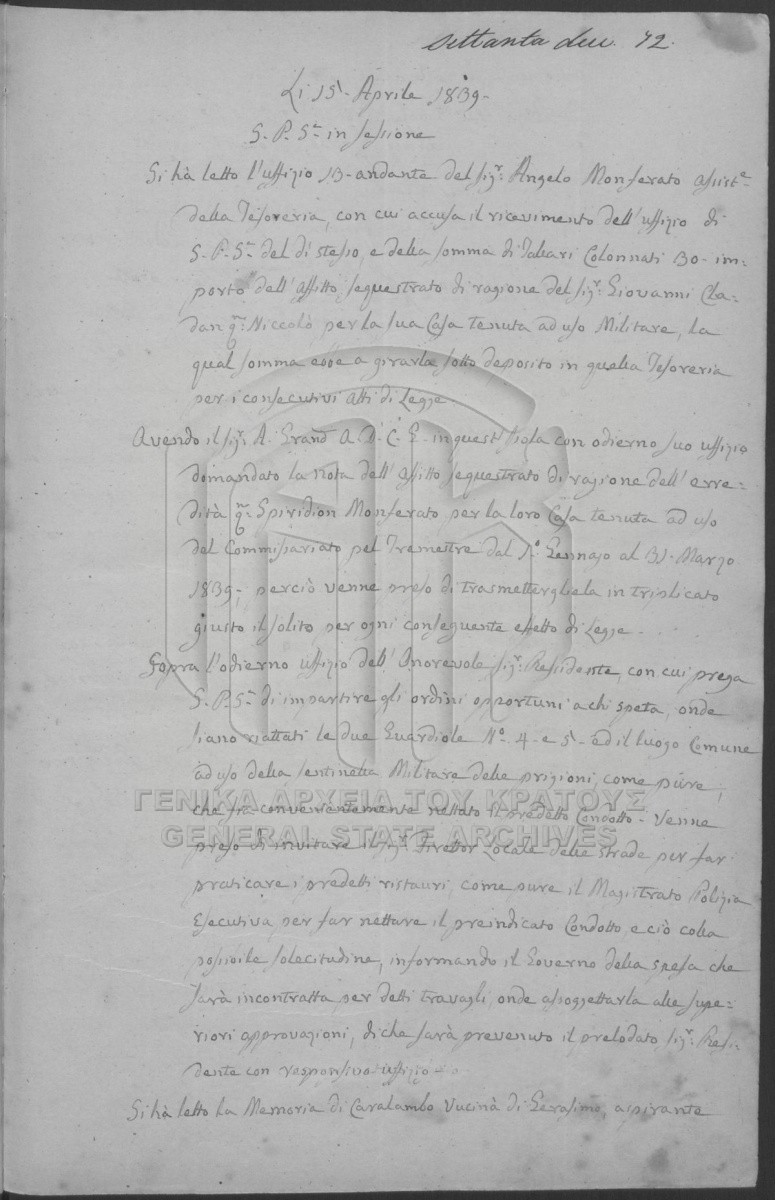 settanta due. 72.
Li 15 Aprile 1839-
S. P. Sª in sessione
Si hà letto l'uffizio 13- andante del sigr. Angelo Monferato Assiste
della Tesoreria, con cui accusa il ricevimento dell'uffizio di
S. P. Sª del dì stesso, e della somma di Tallari Colonnati 30- im=
porto dell'affitto sequestrato di ragione del sigr. Giovanni
dan qm Niccolò per la sua Casa tenuta ad uso Militare, la
qual somma ebbe a girarla sotto deposito in quella Tesoreria
per i consecutivi atti di Legge.
Avendo il sigr. A. Grand A. D. C. G. in quest'Isola con odierno suo uffizio
domandato la nota dell'affitto sequestrato di ragione dell'erre=
dità qm Spiridion Monferato per la loro Casa tenuta ad uso
del Commissariato pel Tremestre dal 1º Gennajo al 31- Marzo
1839-, perciò venne preso di trasmettergliela in triplicato
giusto il solito per ogni conseguente effetto di Legge.
Sopra l'odierno uffizio dell'Onorevole sigr. Residente, con cui prega
S. P. Sª di impartire gli ordini opportuni a chi speta, onde
siano riattati le due Guardiole Nº 4- e 5- ed il luogo Comune
ad uso della sentinella Militare delle prigioni, come pure,
che sia convenientemente nettato il predetto Condotto- Venne
preso di invitare il sigr. Direttor Locale delle strade per far
praticare i predetti ristauri, come pure il Magistrato Polizia
Esecutiva per far nettare il preindicato Condotto, e ciò colla
possibile solecitudine, informando il Governo della spesa che
sarà incontratta per detti travagli, onde assoggettarla alle supe=
riori approvazioni, di che sarà prevenuto il prelodato sigr. Resi=
dente con responsivo uffizio-
Si hà letto la Memoria di Caralambo Vucinà di Gerasimo, aspirante
ΓΕΝΙΚΑ ΑΡΧΕΙΑ ΤΟΥ ΚΡΑΤΟΥΣ
GENERAL STATE ARCHIVES